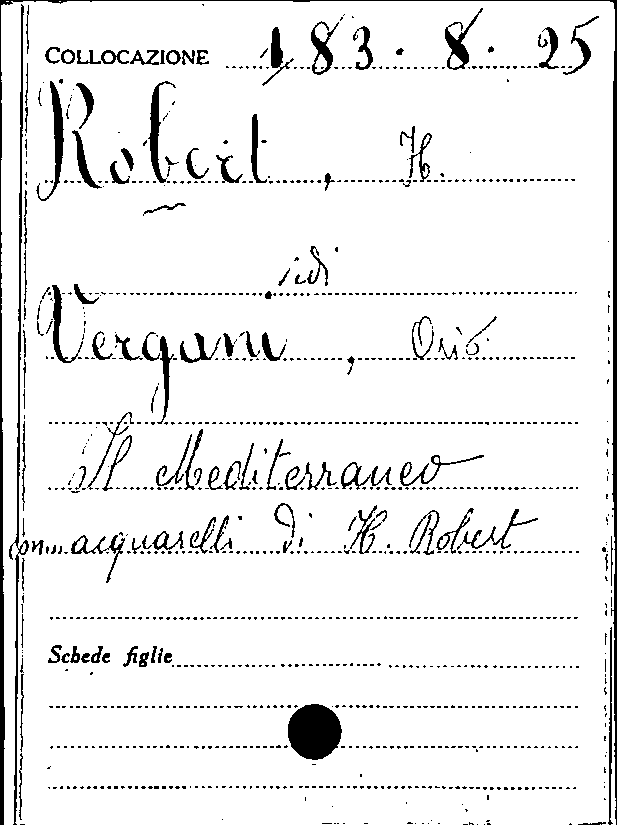 COLLOCAZIONE 183. 8. 25
Robert, H.
vidi
Vergani, Orio.
Il Mediterraneo
con acquarelli di H. Robert
Schede figlie